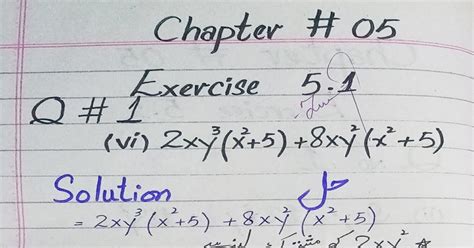 Chapter # 05
Exercise 5.1
Q # 1
(vi) 2xy³(x²+5) + 8xy²(x²+5)
Solution حل
= 2xy³(x²+5) + 8xy²(x²+5)
2xy² کو